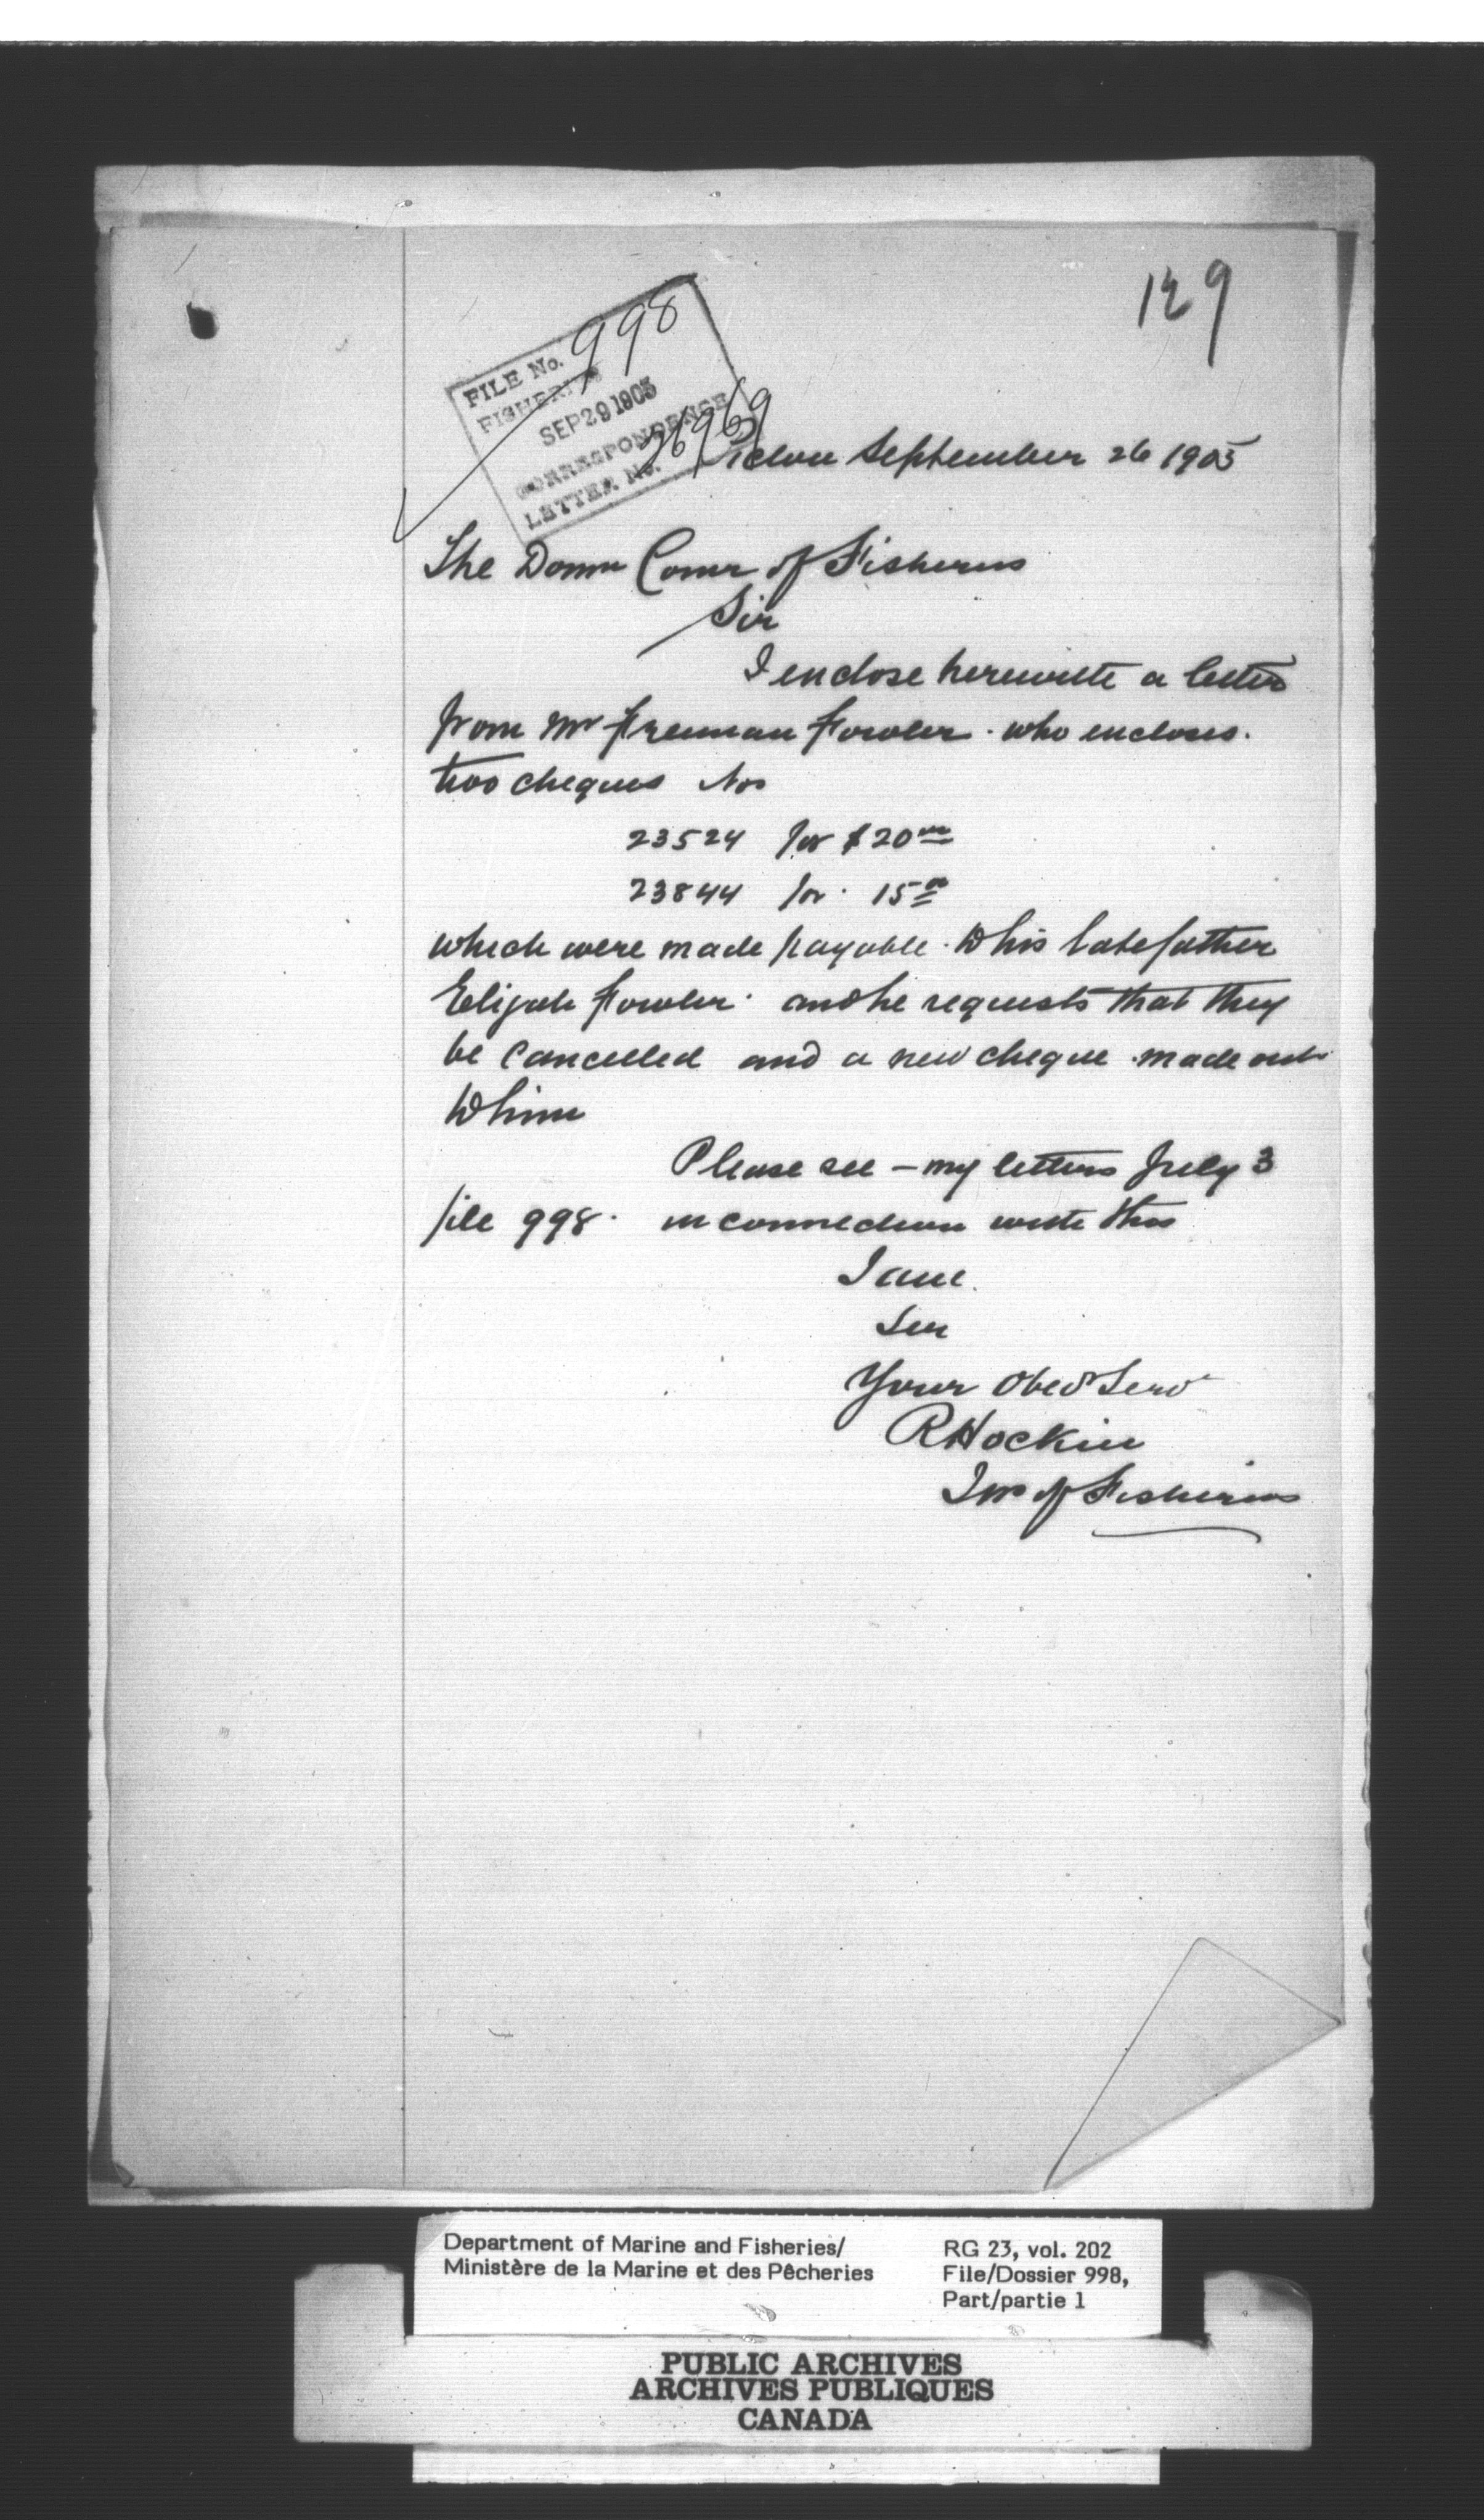 129
FILE No. 998
FISHERIES
SEP 29 1905
CORRESPONDENCE
LETTER No. 26969
Pictou September 26 1905
The Domn Comr of Fisheries
Sir
I enclose herewith a letter
from Mr Freeman Fowler. who encloses.
two cheques Nos
23524 for $20 00
23844 for. 15 00
which were made payable. to his late father
Elijah Fowler. and he requests that they
be cancelled and a new cheque made out
to him
Please see - my letters July 3
file 998. in connection with this
I am.
Sir
Your Obed Serv
R Hockin
Ins of Fisheries
Department of Marine and Fisheries/
Ministère de la Marine et des Pêcheries
RG 23, vol. 202
File/Dossier 998,
Part/partie 1
PUBLIC ARCHIVES
ARCHIVES PUBLIQUES
CANADA